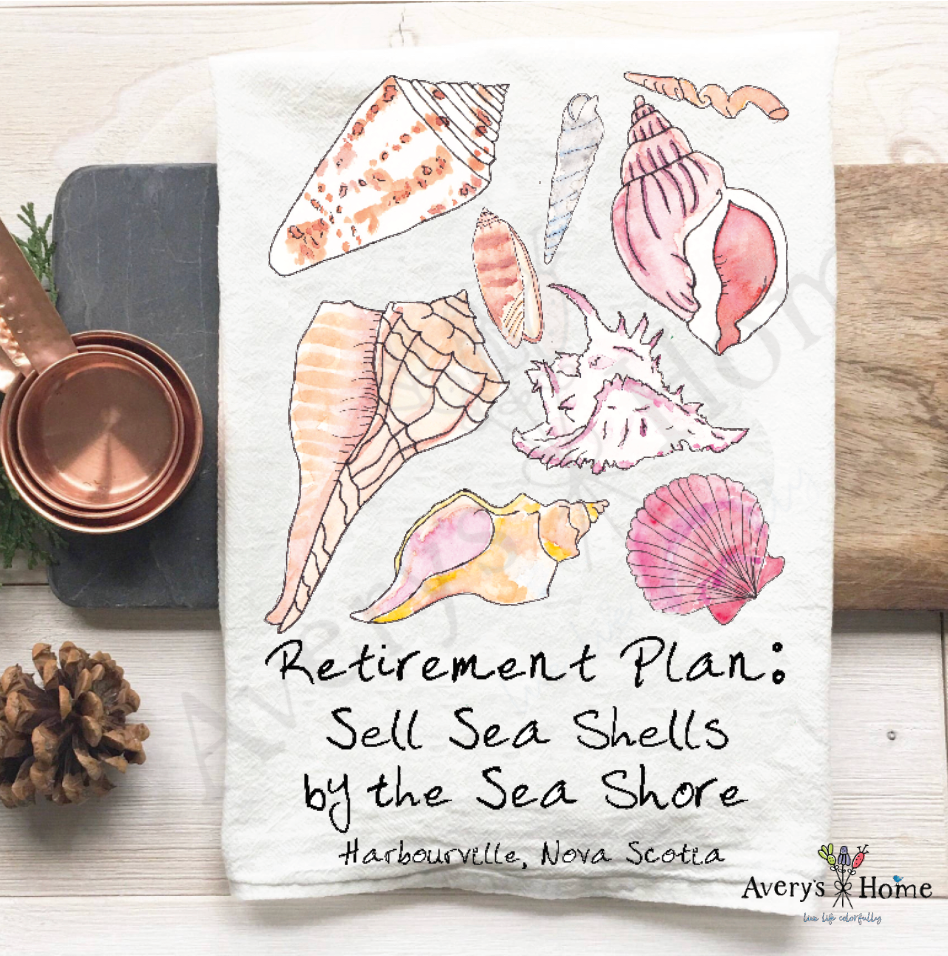 Retirement Plan:
Sell Sea Shells
by the Sea Shore
Harbourville, Nova Scotia
Avery's Home
live life colorfully
Avery's Home